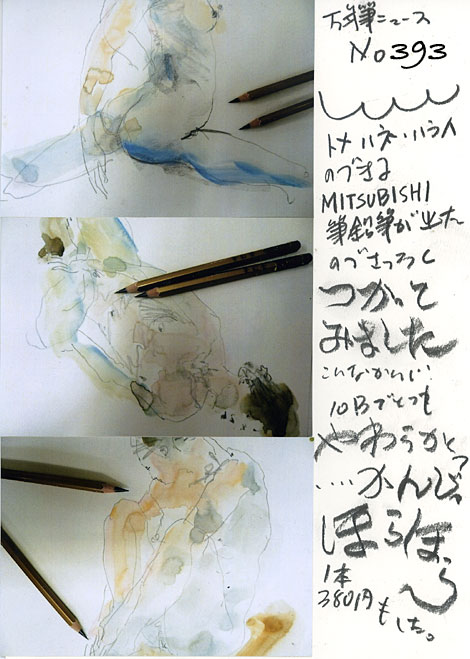 万年筆ニュース
No 393
トメ ハネ・ハライ
のできる
MITSUBISHI
筆鉛筆が出た
のでさっそく
つかって
みました
こんなかんじ!
10Bでとても
やわらかく
…かんじ。
1本
380円
もした。